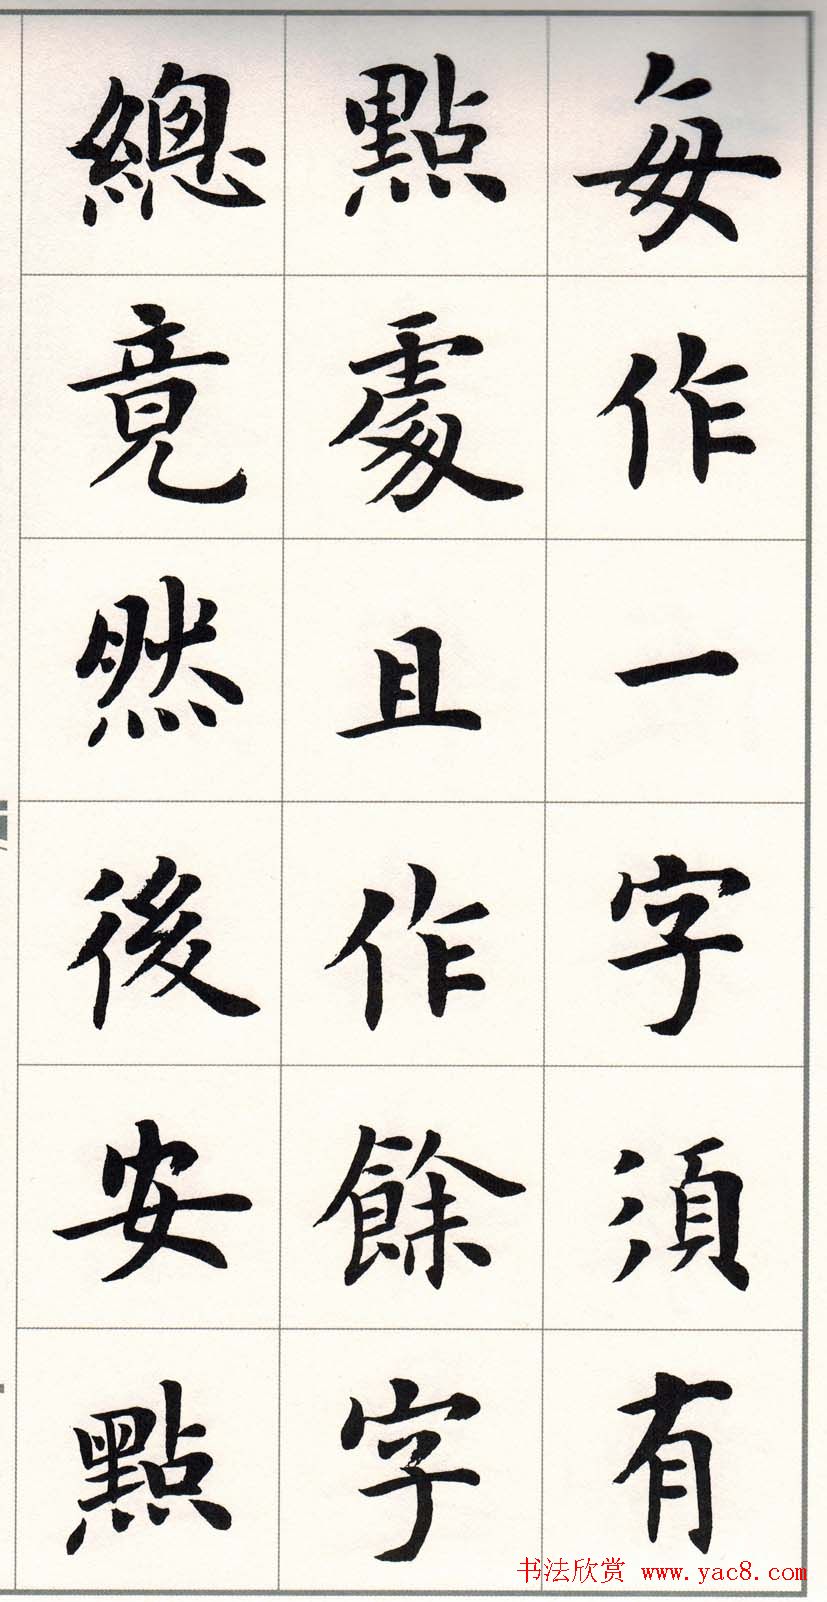 每作一字須有
點處且作餘字
總竟然後安點
书法欣赏 www.yac8.com